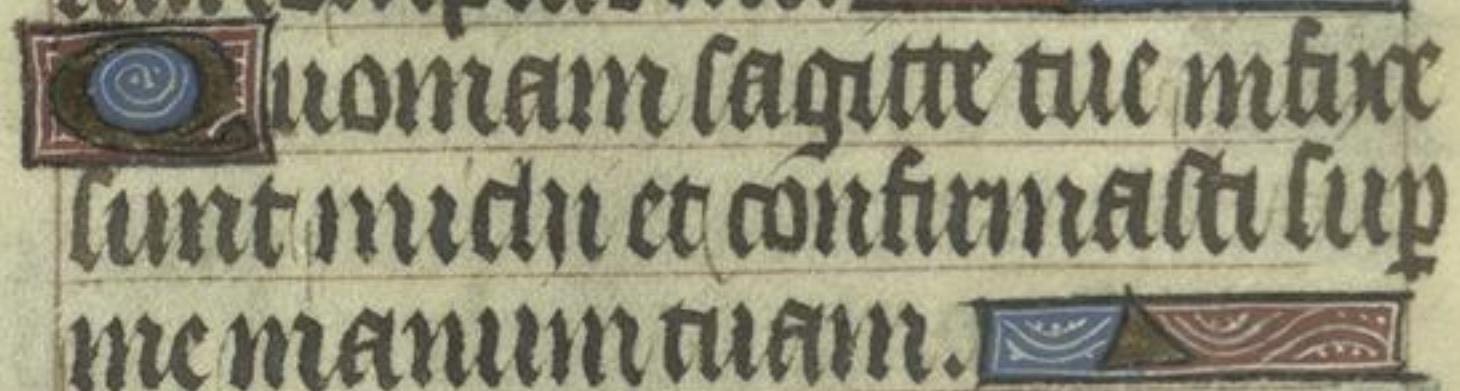 Quoniam sagitte tue infixe
sunt michi et confirmasti sup
me manum tuam.